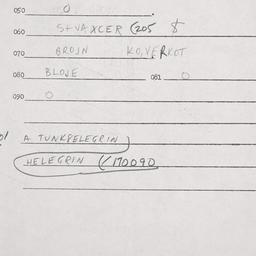 050 O
060 S+VAXCER (205 $
070 BROJN KO,VERKOT
080 BLOJE 081 O
090 O
A TUNKPELEGRIN
HELEGRIN (/170090